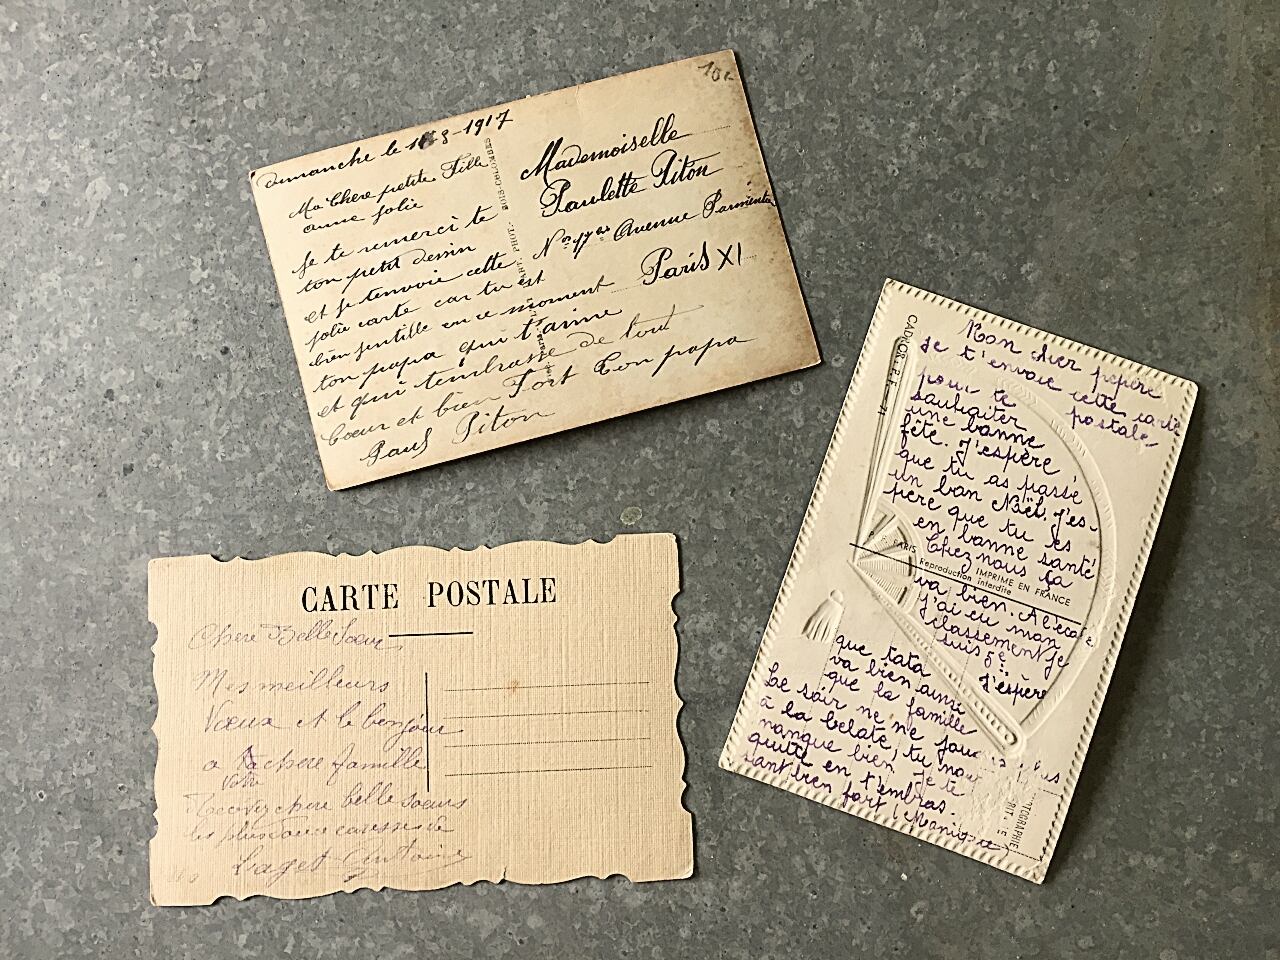 10c
dimanche le 1 8-1917
Ma Chere petite Fille
aime jolie
je te remerci te
ton petit dessin
et je t'envoie cette
jolie carte car tu est
bien gentille en ce moment
ton papa qui t'aime
et qui t'embrasse de tout
Coeur et bien Fort Ton papa
Paul Piton
Mademoiselle
Paulette Piton
Avenue Parmentier
Paris XI
BOIS-COLOMBES
CARTE POSTALE
Chere Belle Soeur
Mes meilleurs
Vœux et le bonjour
a ta chere famille
votre
Recevez chere belle soeurs
les plus douce caresses de
Laget Antoine
CADFOR
Mon cher pépère
je t'envoie cette carte
pour te postale
souhaiter
une bonne
fête. J'espère
que tu as passé
un bon Noël. J'es-
père que tu es
en bonne santé
Chez nous ça
PARIS
IMPRIME EN FRANCE
Reproduction interdite
va bien. A l'école
j'ai eu mon
classement je
suis 5e
J'espère
que tata
va bien ainsi
que la famille
Le soir ne ne joue plus
à la belote, tu nous
manque bien. Je te
quitte en t'embras-
sant bien fort (Monique
PHOTOGRAPHIE